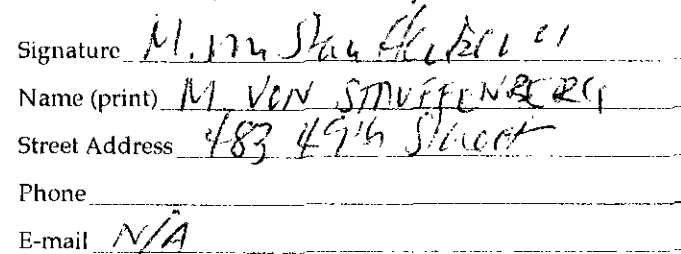 Signature M. von Stauffenberg
Name (print) M VON STAUFFENBERG
Street Address 483 49th Street
Phone
E-mail N/A